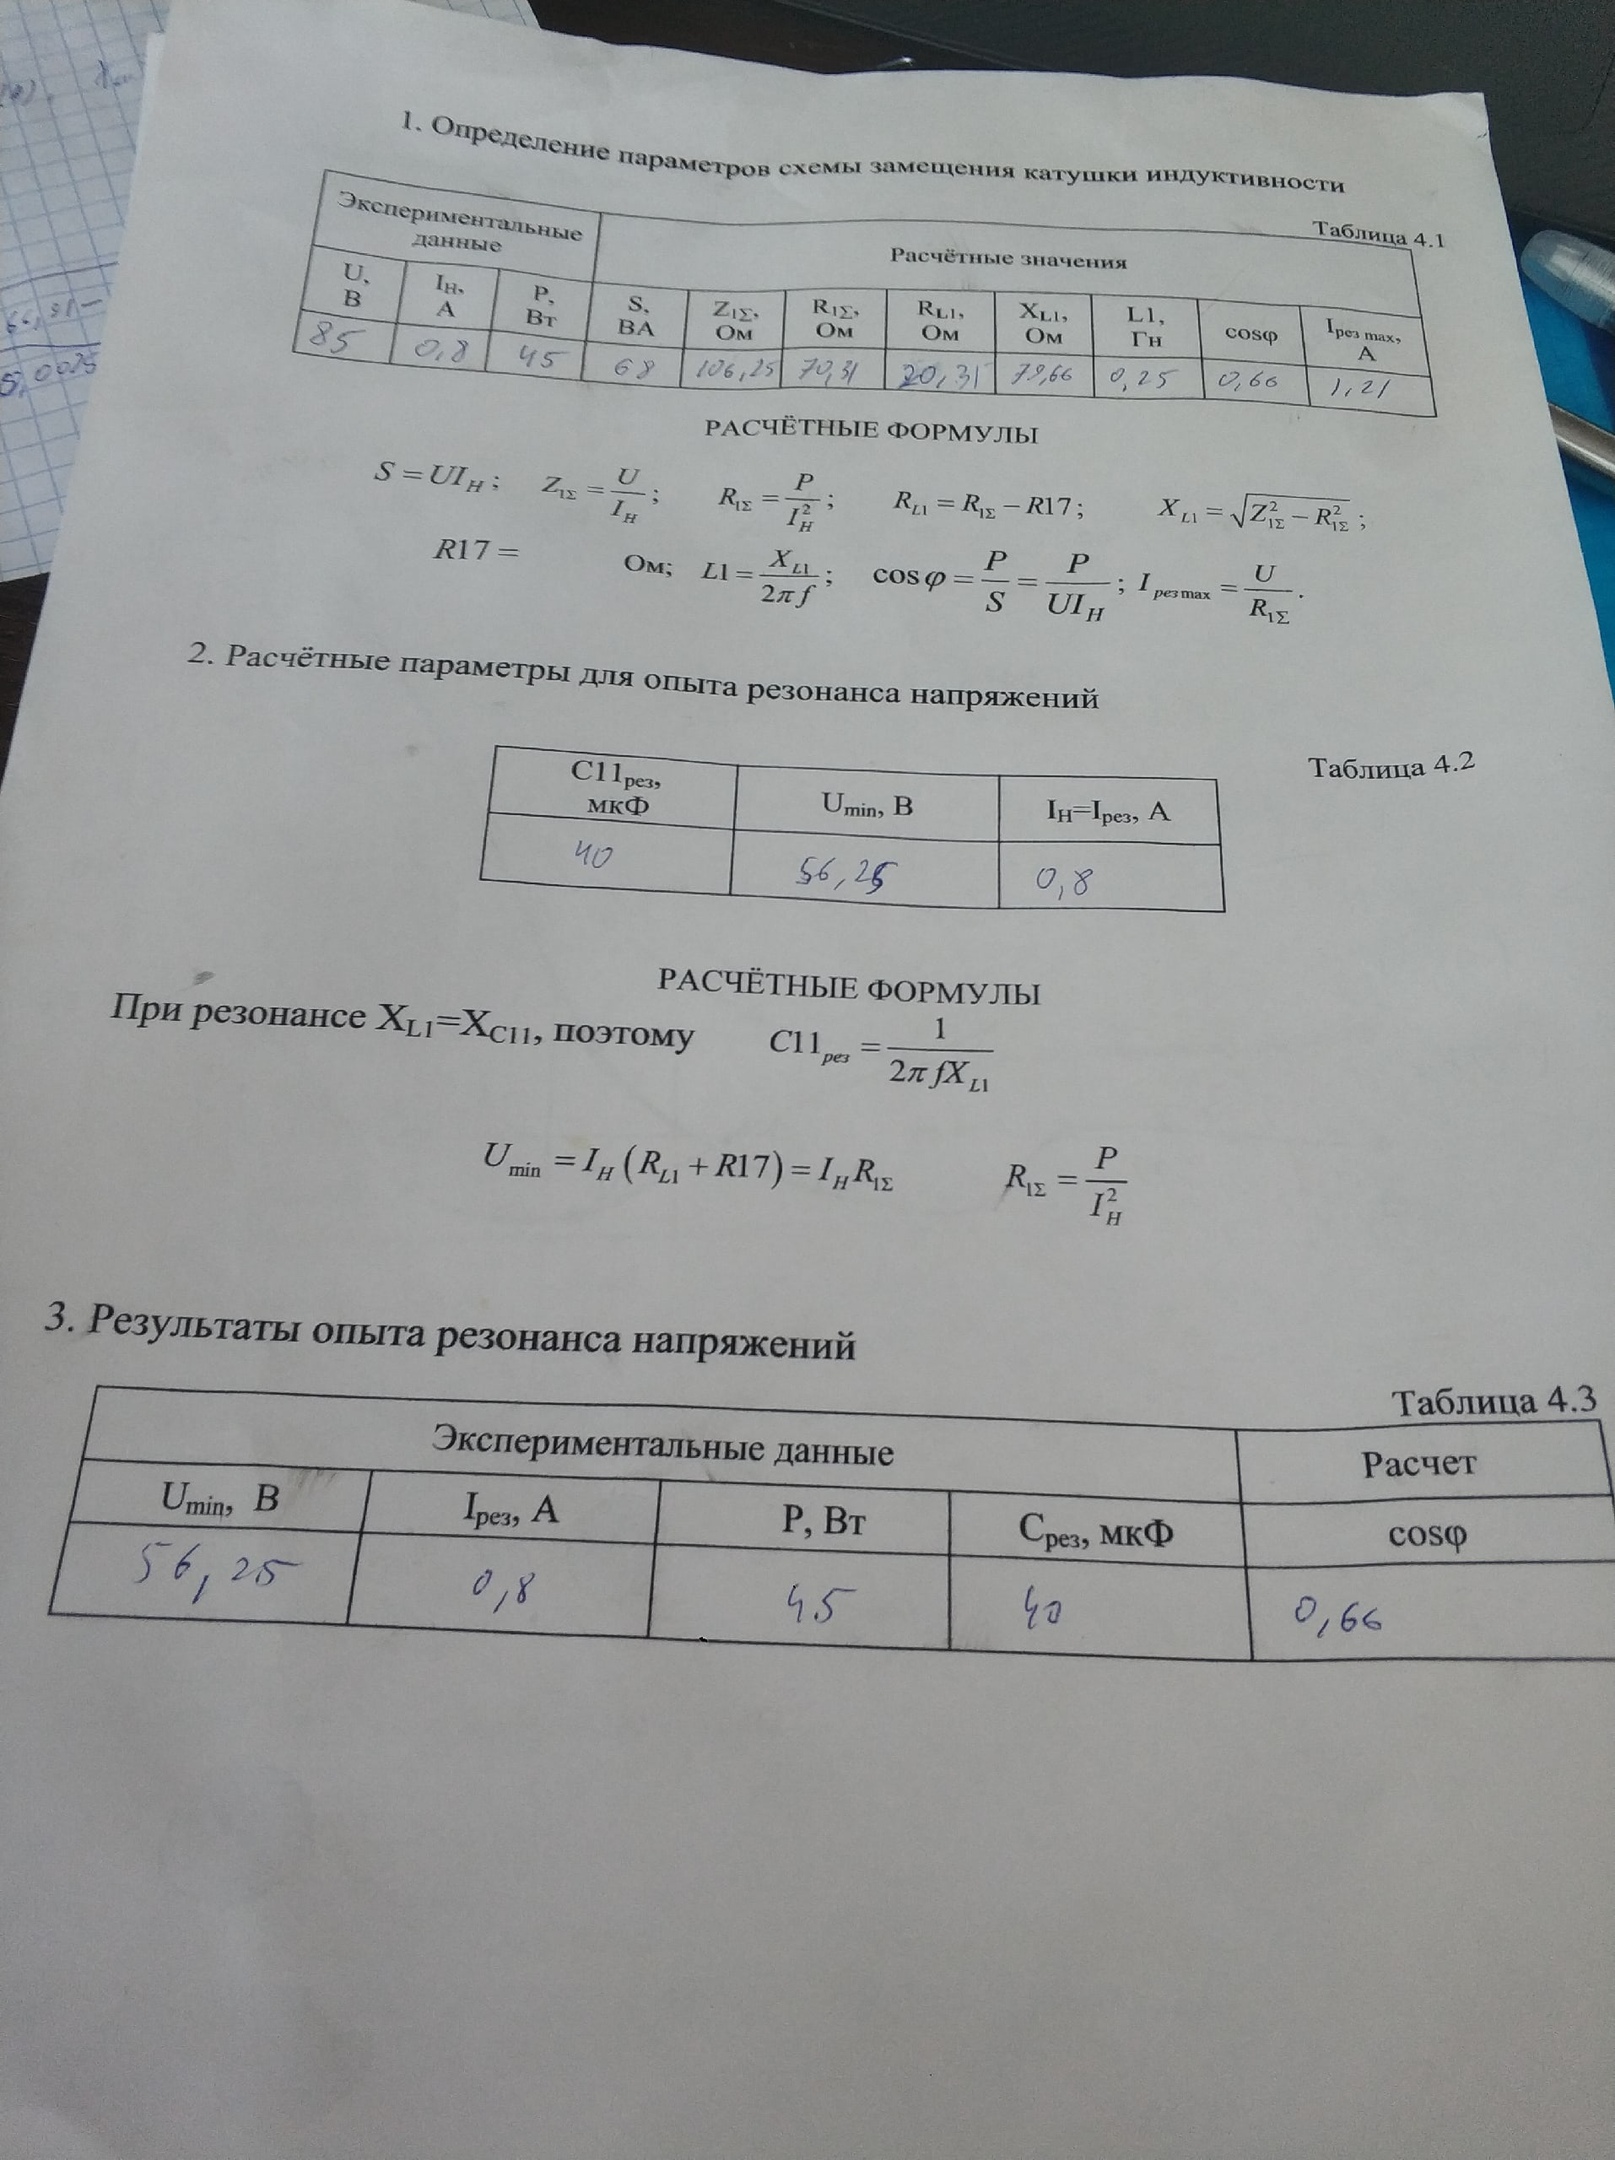 1. Определение параметров схемы замещения катушки индуктивности
Таблица 4.1
Экспериментальные данные Расчётные значения
U, В Iн, А P, Вт S, ВА Z1Σ, Ом R1Σ, Ом RL1, Ом XL1, Ом L1, Гн cosφ Iрез max, А
85 0,8 45 68 106,25 70,31 20,31 79,66 0,25 0,66 1,21
РАСЧЁТНЫЕ ФОРМУЛЫ
S = UI_H; Z_1Σ = U/I_H; R_1Σ = P/I_H^2; R_L1 = R_1Σ − R17; X_L1 = √(Z_1Σ^2 − R_1Σ^2);
R17 = Ом; L1 = X_L1/2πf; cos φ = P/S = P/UI_H; I_рез max = U/R_1Σ.
2. Расчётные параметры для опыта резонанса напряжений
Таблица 4.2
C11рез, мкФ Umin, В IН=Iрез, А
40 56,25 0,8
РАСЧЁТНЫЕ ФОРМУЛЫ
При резонансе XL1=XC11, поэтому C11_рез = 1/2πfX_L1
U_min = I_H (R_L1 + R17) = I_H R_1Σ R_1Σ = P/I_H^2
3. Результаты опыта резонанса напряжений
Таблица 4.3
Экспериментальные данные Расчет
Umin, В Iрез, А P, Вт Cрез, мкФ cosφ
56,25 0,8 45 40 0,66